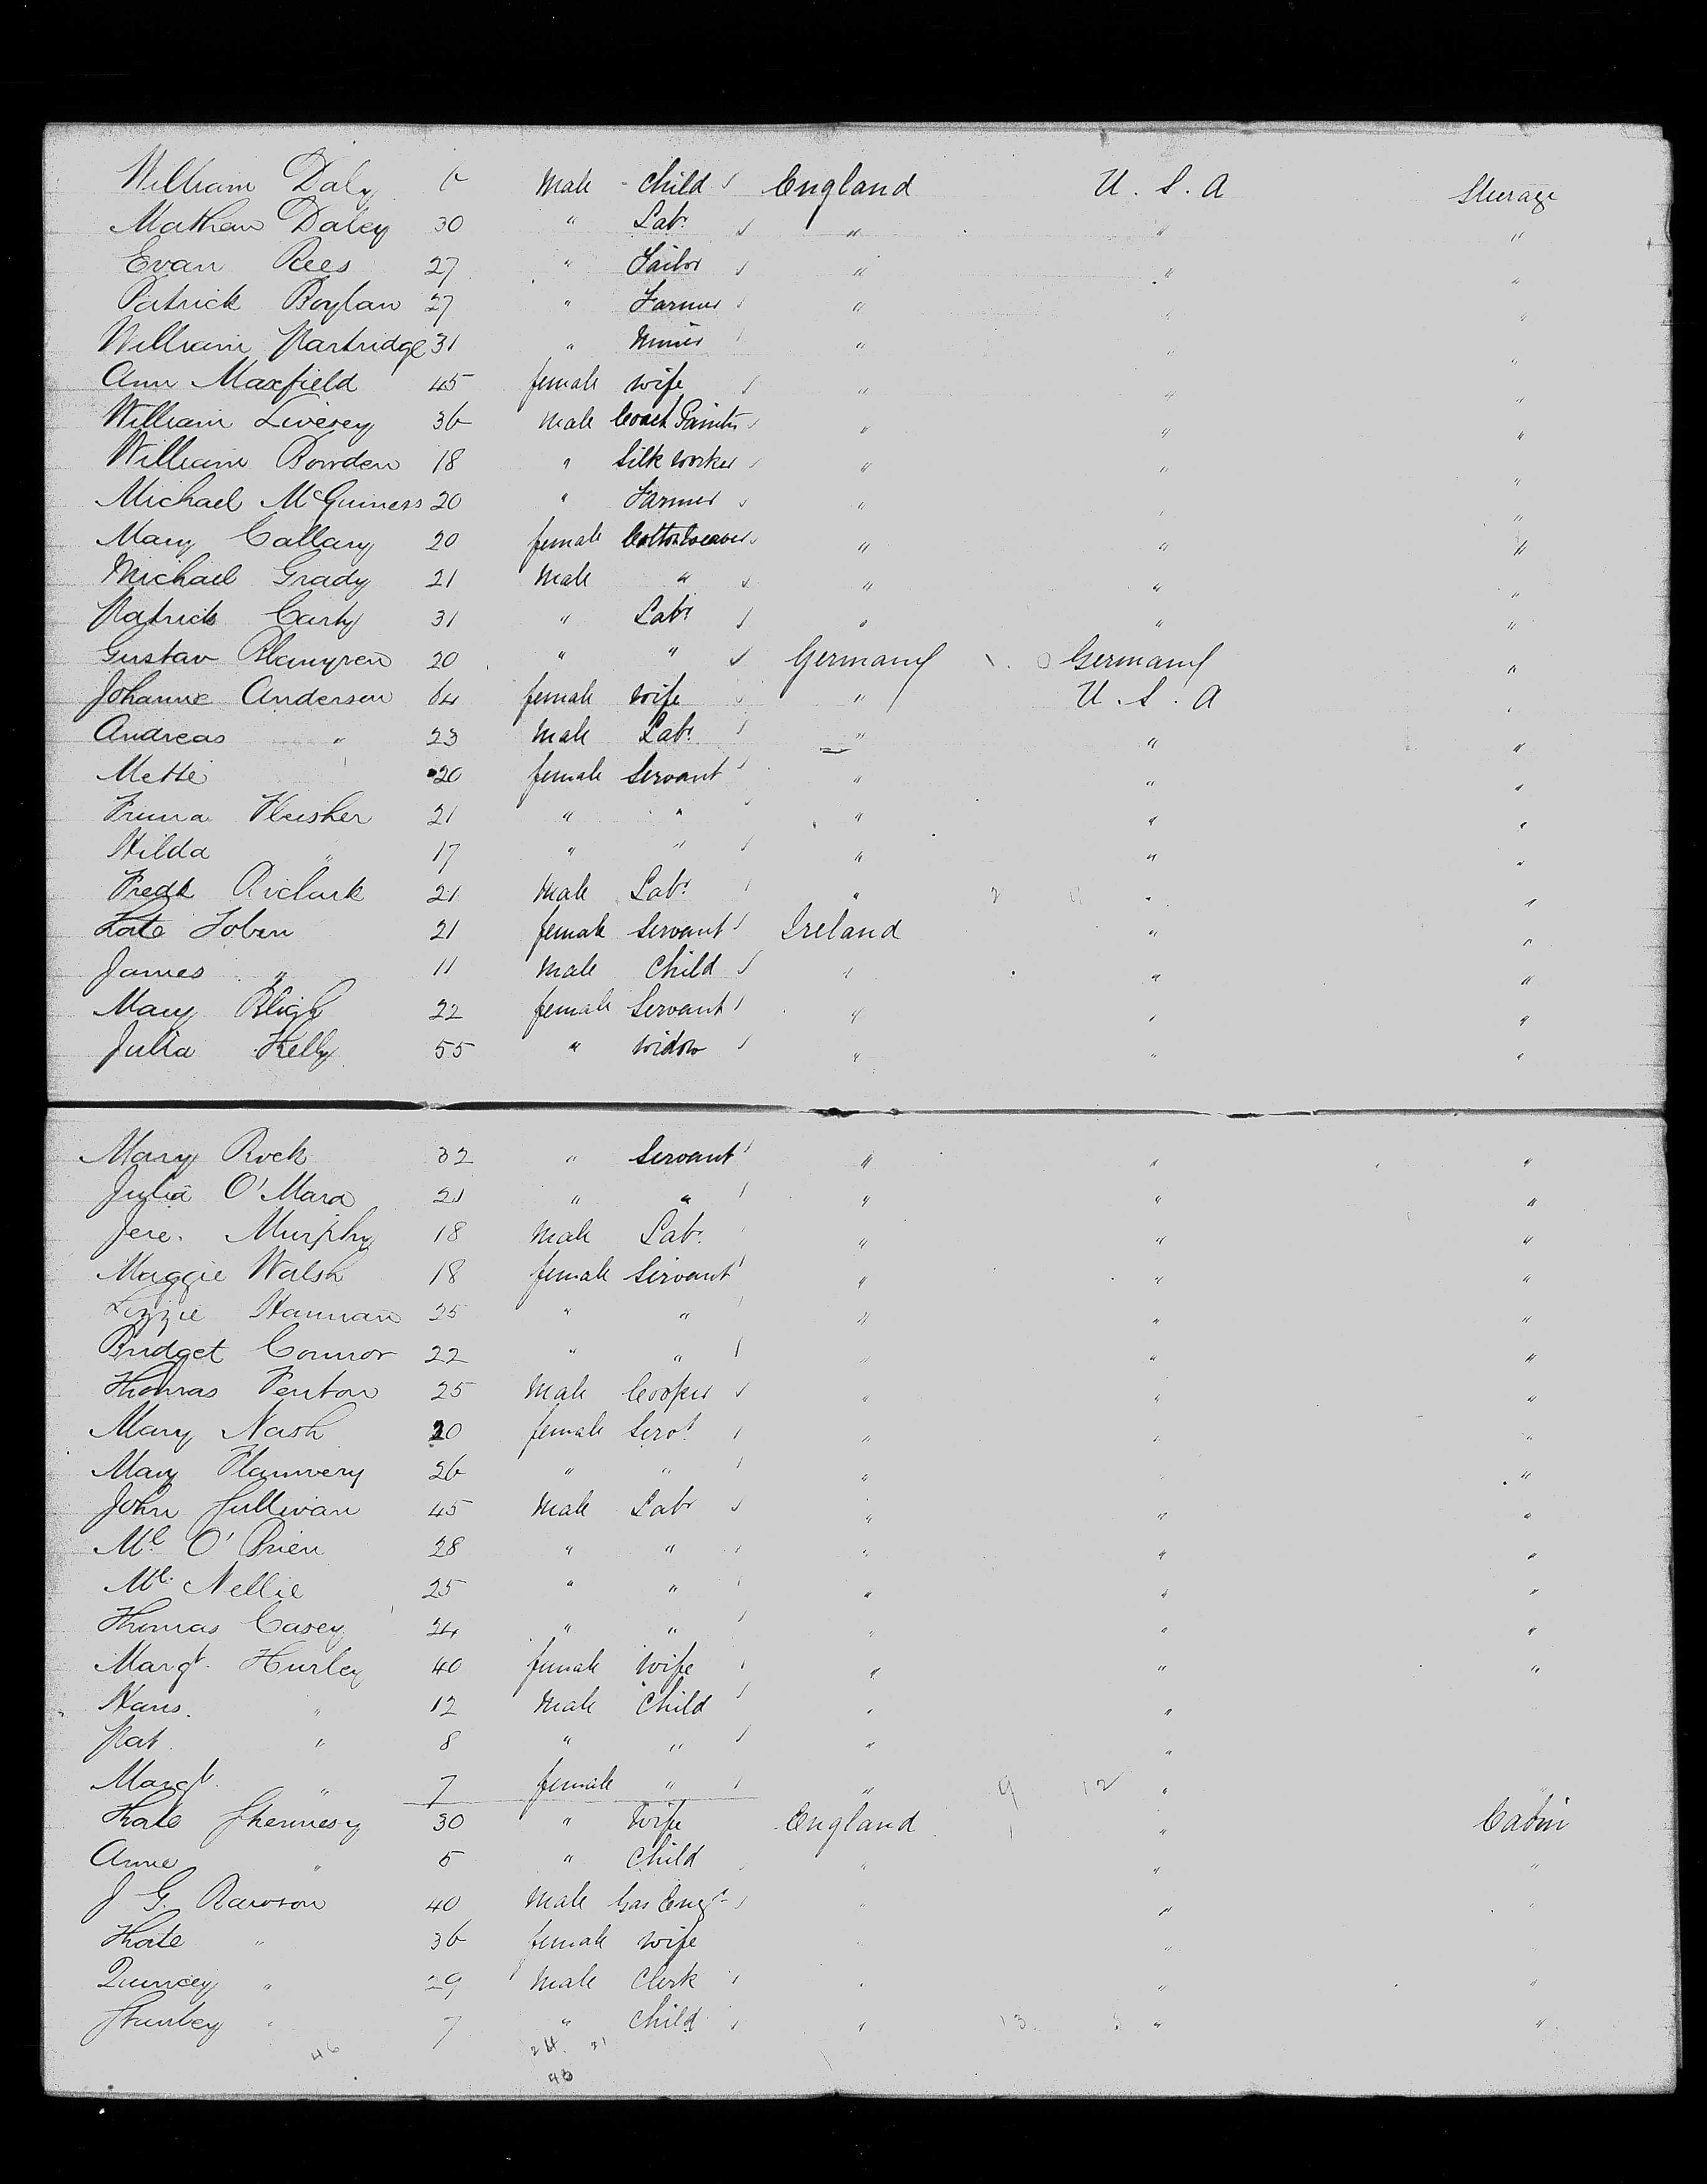 William Daly 6 Male - Child England U. S. A Steerage
Mathew Daley 30 " Labr " " "
Evan Rees 27 " Tailor " " "
Patrick Boylan 27 " Farmer " " "
William Partridge 31 " Miner " " "
Ann Maxfield 45 female wife " " "
William Livesey 36 Male Coach Painter " " "
William Bowden 18 " Silk worker " " "
Michael McGuiness 20 " Farmer " " "
Mary Callary 20 female Cotton Weaver " " "
Michael Grady 21 Male " " " "
Patrick Carty 31 " Labr " " "
Gustav 20 " " Germany Germany "
Johanne Anderson 64 female wife " U. S. A "
Andreas " 23 Male Labr " " "
Mette 20 female Servant " " "
Fleisher 21 " " " " "
Hilda " 17 " " " " "
Fredk 21 Male Labr " " "
Kate Tobin 21 female Servant Ireland " "
James " 11 Male Child " " "
Mary Bligh 22 female Servant " " "
Julia Kelly 55 " widow " " "
Mary Rock 32 " Servant " " "
Julia O'Mara 21 " " " " "
Jere. Murphy 18 Male Labr " " "
Maggie Walsh 18 female Servant " " "
Lizzie Hannan 25 " " " " "
Bridget Connor 22 " " " " "
Thomas Fenton 25 Male Cooper " " "
Mary Nash 20 female Servt " " "
Mary Flannery 26 " " " " "
John Sullivan 45 Male Labr " " "
Ml O'Brien 28 " " " " "
Ml. Nellie 25 " " " " "
Thomas Casey 24 " " " " "
Margt. Hurley 40 female wife " " "
Hans. " 12 Male Child " "
Pat " 8 " " " "
Margt. " 7 female " " 9 12 "
Kate Shennesy 30 " Wife England " Cabin
Anne " 5 " Child " " "
J G. Rawson 40 Male Gas Engr " " "
Kate " 36 female wife " "
Quincey " 29 Male Clerk " " "
Stanley " 7 " Child " 13 " "
46 24 21